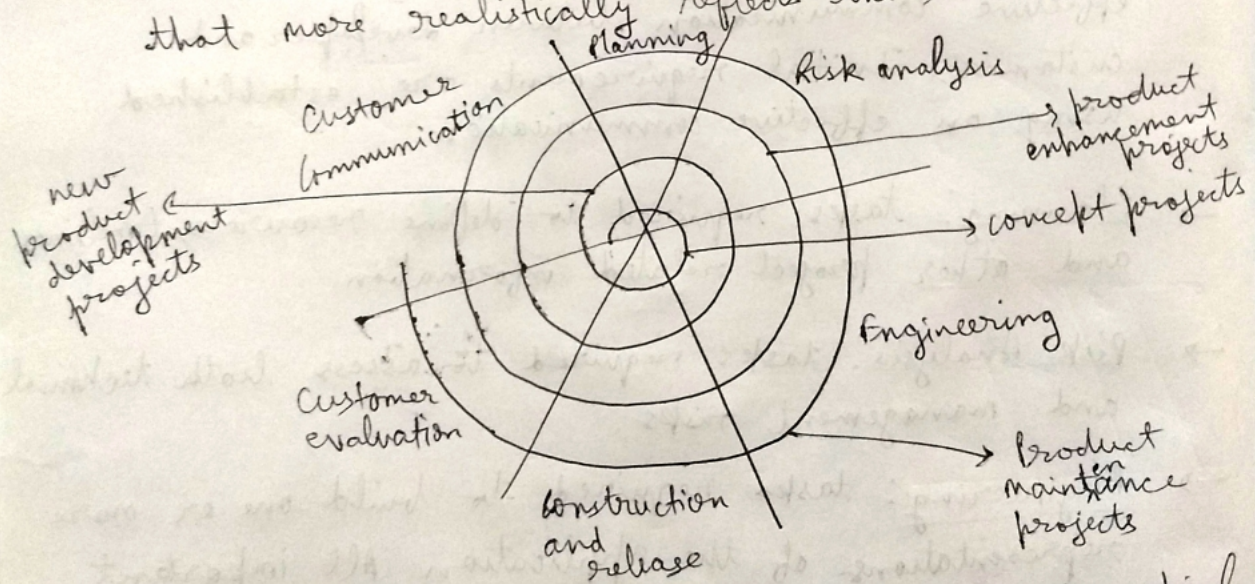 that more realistically
Planning
Risk analysis
Customer
Communication
product
enhancement
projects
new
product
development
projects
concept projects
Engineering
Customer
evaluation
Product
maintenance
projects
Construction
and
release